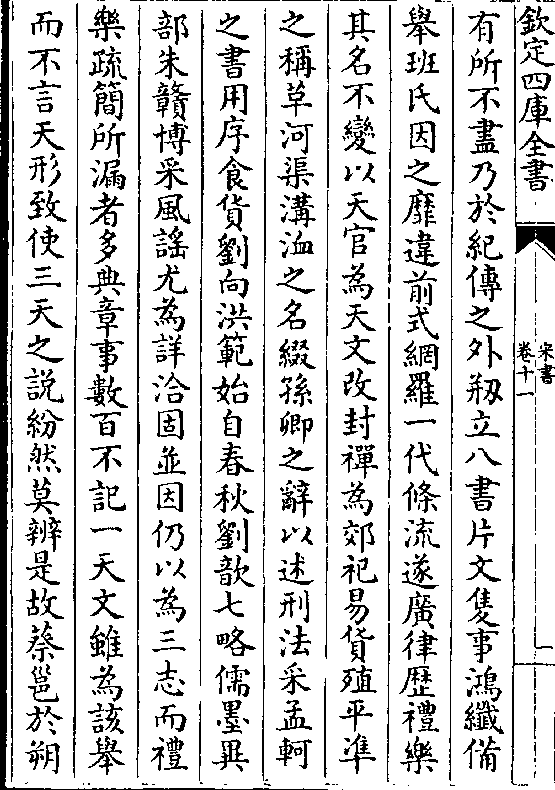 欽定四庫全書
宋書
卷十一
一
有所不盡乃於紀傳之外剏立八書片文隻事鴻纖備
舉班氏因之靡違前式網羅一代條流遂廣律歴禮樂
其名不變以天官為天文改封禪為郊祀易貨殖平準
之稱草河渠溝洫之名綴孫卿之辭以述刑法采孟軻
之書用序食貨劉向洪範始自春秋劉歆七略儒墨異
部朱贛博采風謡尤為詳洽固並因仍以為三志而禮
樂疏簡所漏者多典章事數百不記一天文雖為該舉
而不言天形致使三天之說紛然莫辨是故蔡邕於朔